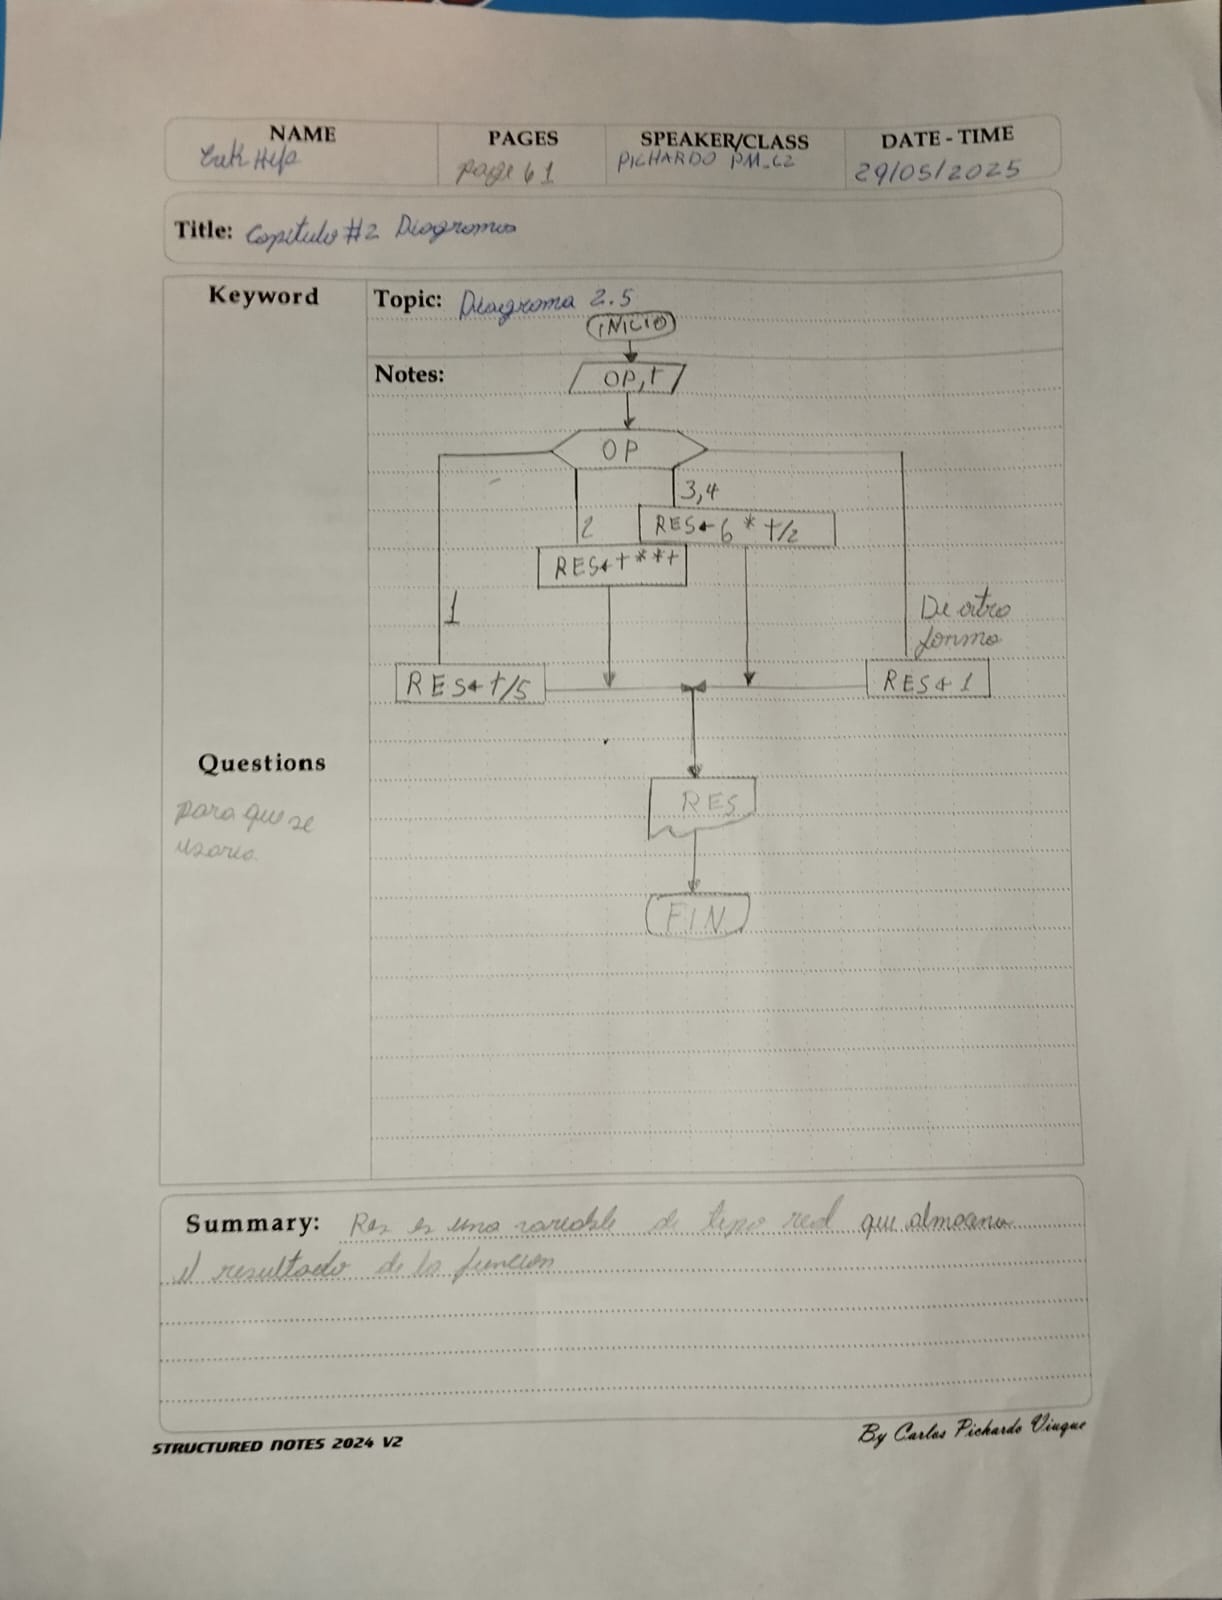 NAME
PAGES
SPEAKER/CLASS
DATE - TIME
page 61
PICHARDO PM_62
29/05/2025
Title: Capitulo #2 Diagramas
Keyword
Topic: Diagrama 2.5
INICIO
Notes:
OP, t
OP
3,4
2
RES← 6 * t/2
RES← t**t
1
De otro
forma
RES← t/5
RES← 1
Questions
para que se
usaria.
RES
FIN
Summary: Res es una variable de tipo real que almacena
el resultado de la funcion
STRUCTURED NOTES 2024 V2
By Carlos Pichardo Viuque